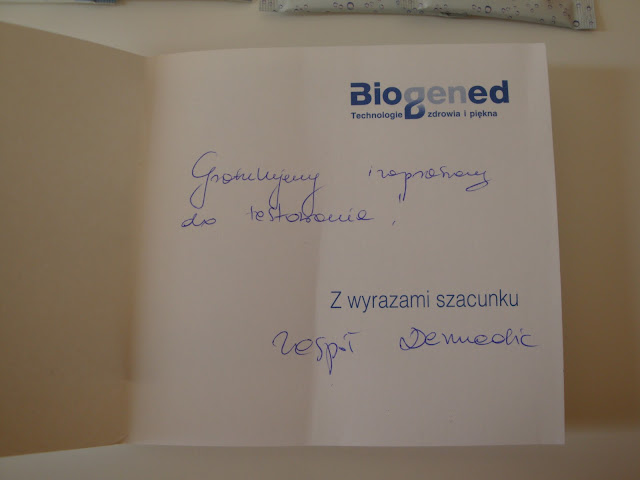 Biogened
Technologie zdrowia i piękna
Gratulujemy i zapraszamy
do testowania,
Z wyrazami szacunku
Zespół Dermedic